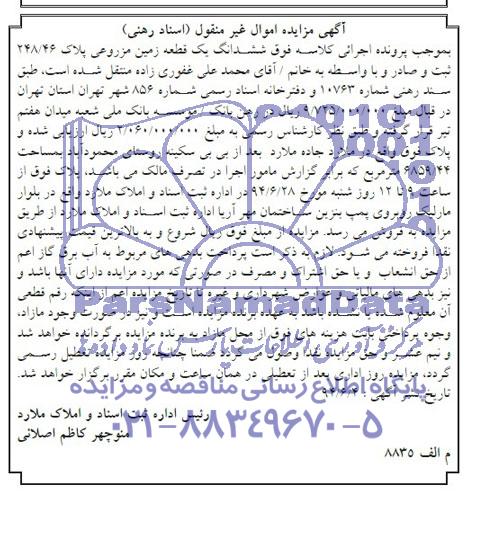 آگهی مزایده اموال غیر منقول (اسناد رهنی)
بموجب پرونده اجرائی کلاسه فوق ششدانگ یک قطعه زمین مزروعی پلاک ۲۴۸/۴۶
ثبت و صادر و با واسطه به خانم / آقای محمد علی غفوری زاده منتقل شده است، طبق
سند رهنی شماره ۱۰۷۶۳ و دفترخانه اسناد رسمی شماره ۸۵۶ شهر تهران استان تهران
در قبال مبلغ ریال در رهن بانک / مؤسسه بانک ملی شعبه میدان هفتم
تیر قرار گرفته و طبق نظر کارشناس رسمی به مبلغ ریال ارزیابی شده و
پلاک فوق واقع در ملارد جاده ملارد بعد از بی بی سکینه روستای محمودآباد بمساحت
۶۸۵۹/۴۴ مترمربع که برابر گزارش مامور اجرا در تصرف مالک می باشد، پلاک فوق از
ساعت ۹ تا ۱۲ روز شنبه مورخ ۹۴/۶/۲۸ در اداره ثبت اسناد و املاک ملارد واقع در بلوار
مارلیک روبروی پمپ بنزین ساختمان مهر آریا اداره ثبت اسناد و املاک ملارد از طریق
مزایده به فروش می رسد. مزایده از مبلغ فوق ریال شروع و به بالاترین قیمت پیشنهادی
نقدا فروخته می شود. لازم به ذکر است پرداخت بدهی های مربوط به آب برق گاز اعم
از حق انشعاب و یا حق اشتراک و مصرف در صورتی که مورد مزایده دارای آنها باشد و
نیز بدهی های مالیاتی و عوارض شهرداری و غیره تا تاریخ مزایده اعم از اینکه رقم قطعی
آن معلوم شده یا نشده باشد به عهده برنده مزایده است و نیز در صورت وجود مازاد،
وجوه پرداختی بابت هزینه های فوق از محل مازاد به برنده مزایده برگردانده خواهد شد
و نیم عشر و حق مزایده نقدا وصول می گردد ضمنا چنانچه روز مزایده تعطیل رسمی
گردد، مزایده روز اداری بعد از تعطیلی در همان ساعت و مکان مقرر برگزار خواهد شد.
تاریخ نشر آگهی:
رئیس اداره ثبت اسناد و املاک ملارد
منوچهر کاظم اصلانی
م الف ۸۸۳۵
ParsNamadData
پایگاه اطلاع رسانی مناقصه و مزایده
۰۲۱-۸۸۳۴۹۶۷۰-۵